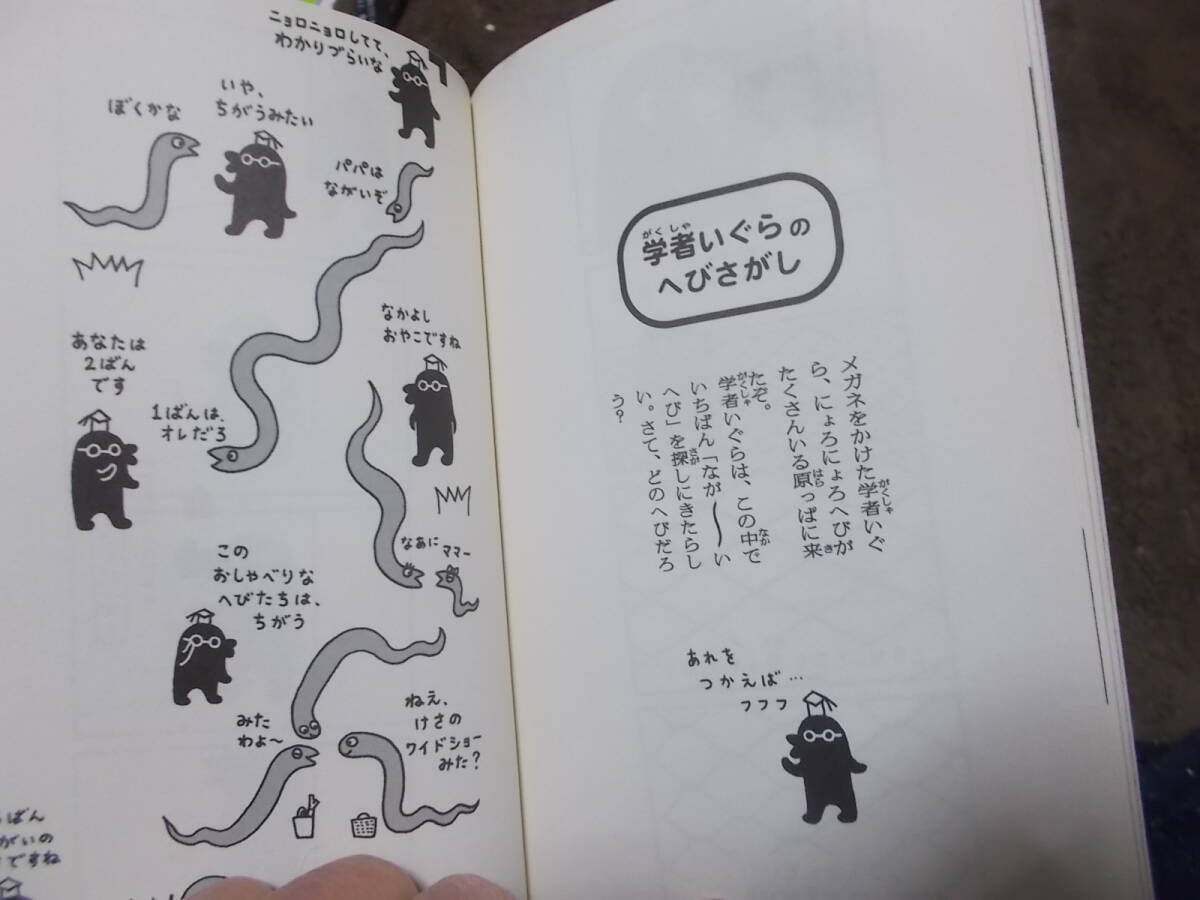 学者いぐらの
へびさがし
メガネをかけた学者いぐ
ら、にょろにょろへびが
たくさんいる原っぱに来
たぞ。
学者いぐらは、この中で
いちばん「なが〜〜い
へび」を探しにきたらし
い。さて、どのへびだろ
う?
あれを
つかえば…
フフフ
ニョロニョロしてて、
わかりづらいな
いや、
ちがうみたい
ぼくかな
パパは
ながいぞ
なかよし
おやこですね
あなたは
2ばん
です
1ばんは、
オレだろ
なあに
ママー
この
おしゃべりな
へびたちは、
ちがう
ねえ、
けさの
ワイドショー
みた?
みた
わよ〜
ばん
がいの
ですね